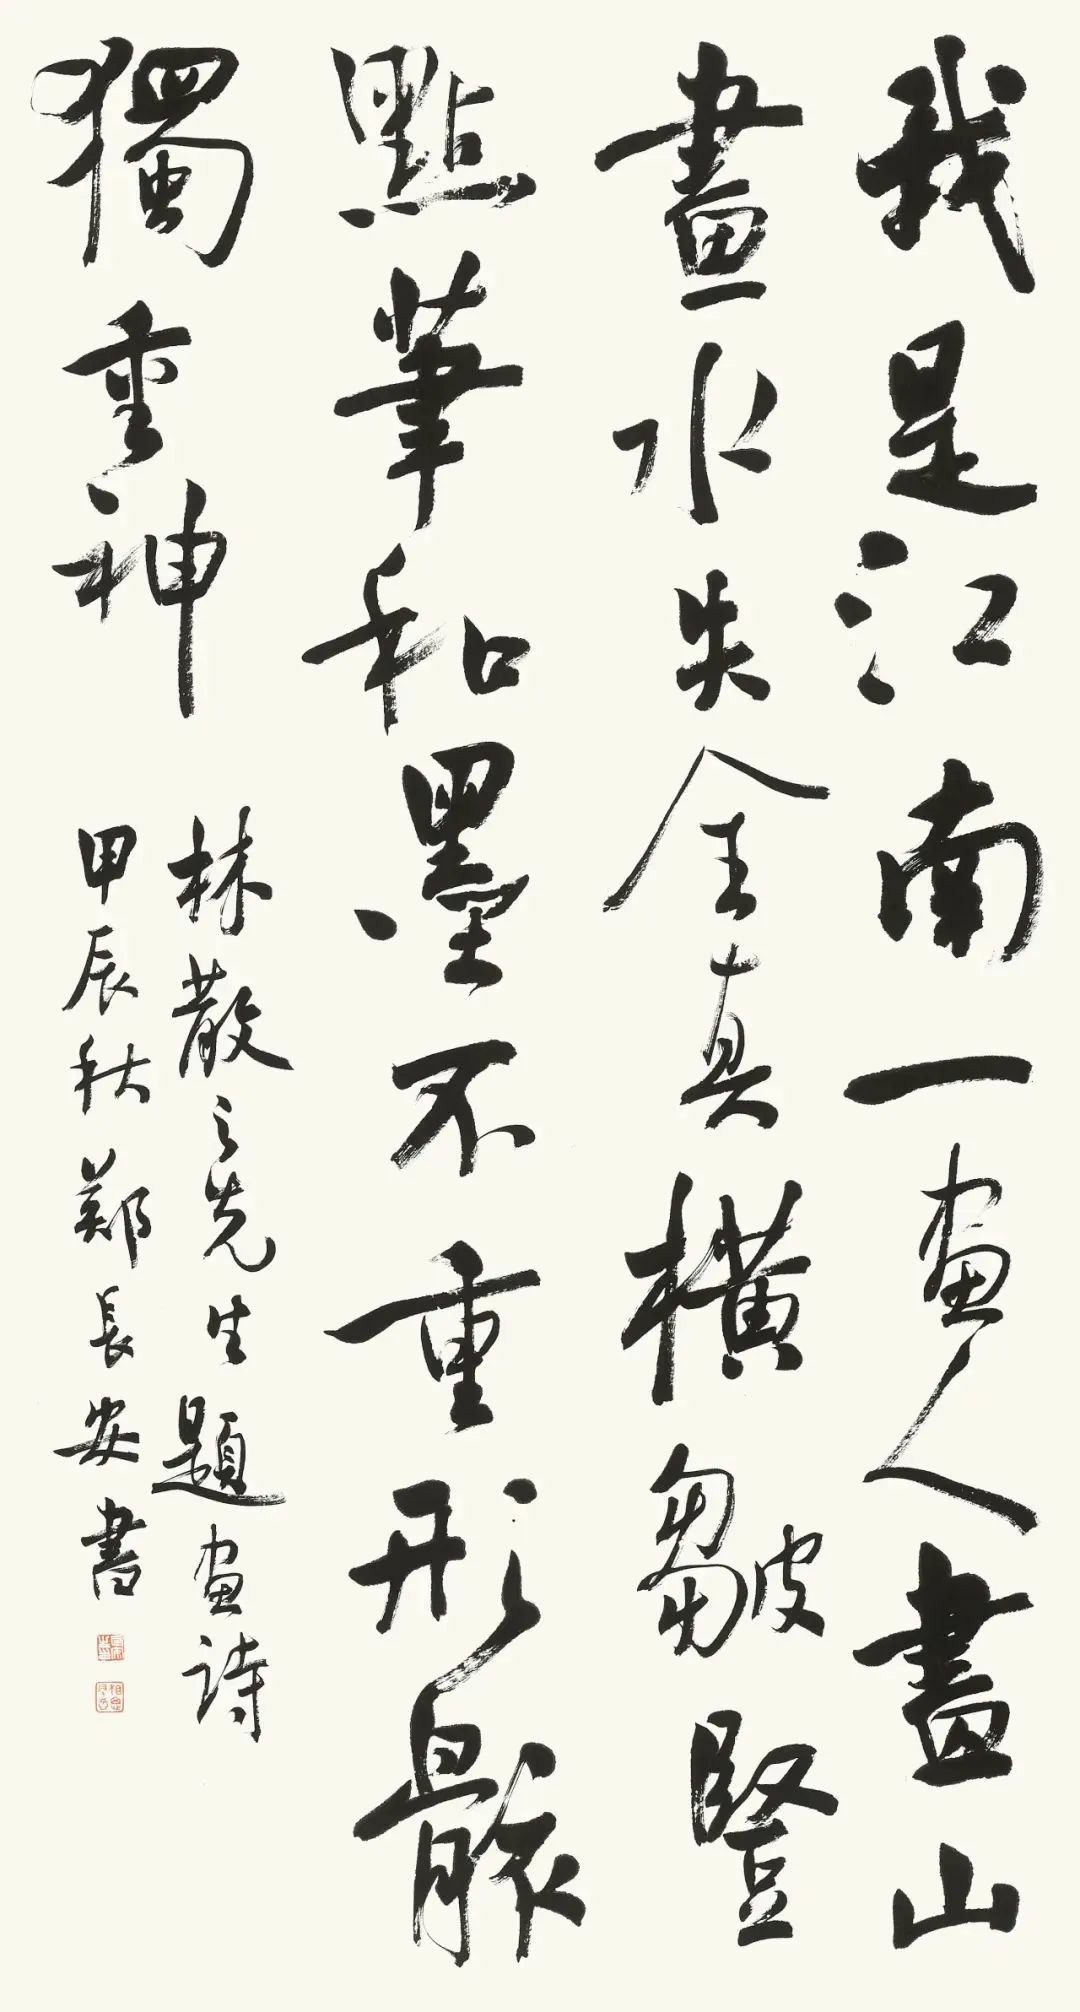 我是江南一画人畫山
畫水失全真橫皴豎
點筆和墨不重形骸
獨重神
林散之先生題画詩
甲辰秋鄭長安書